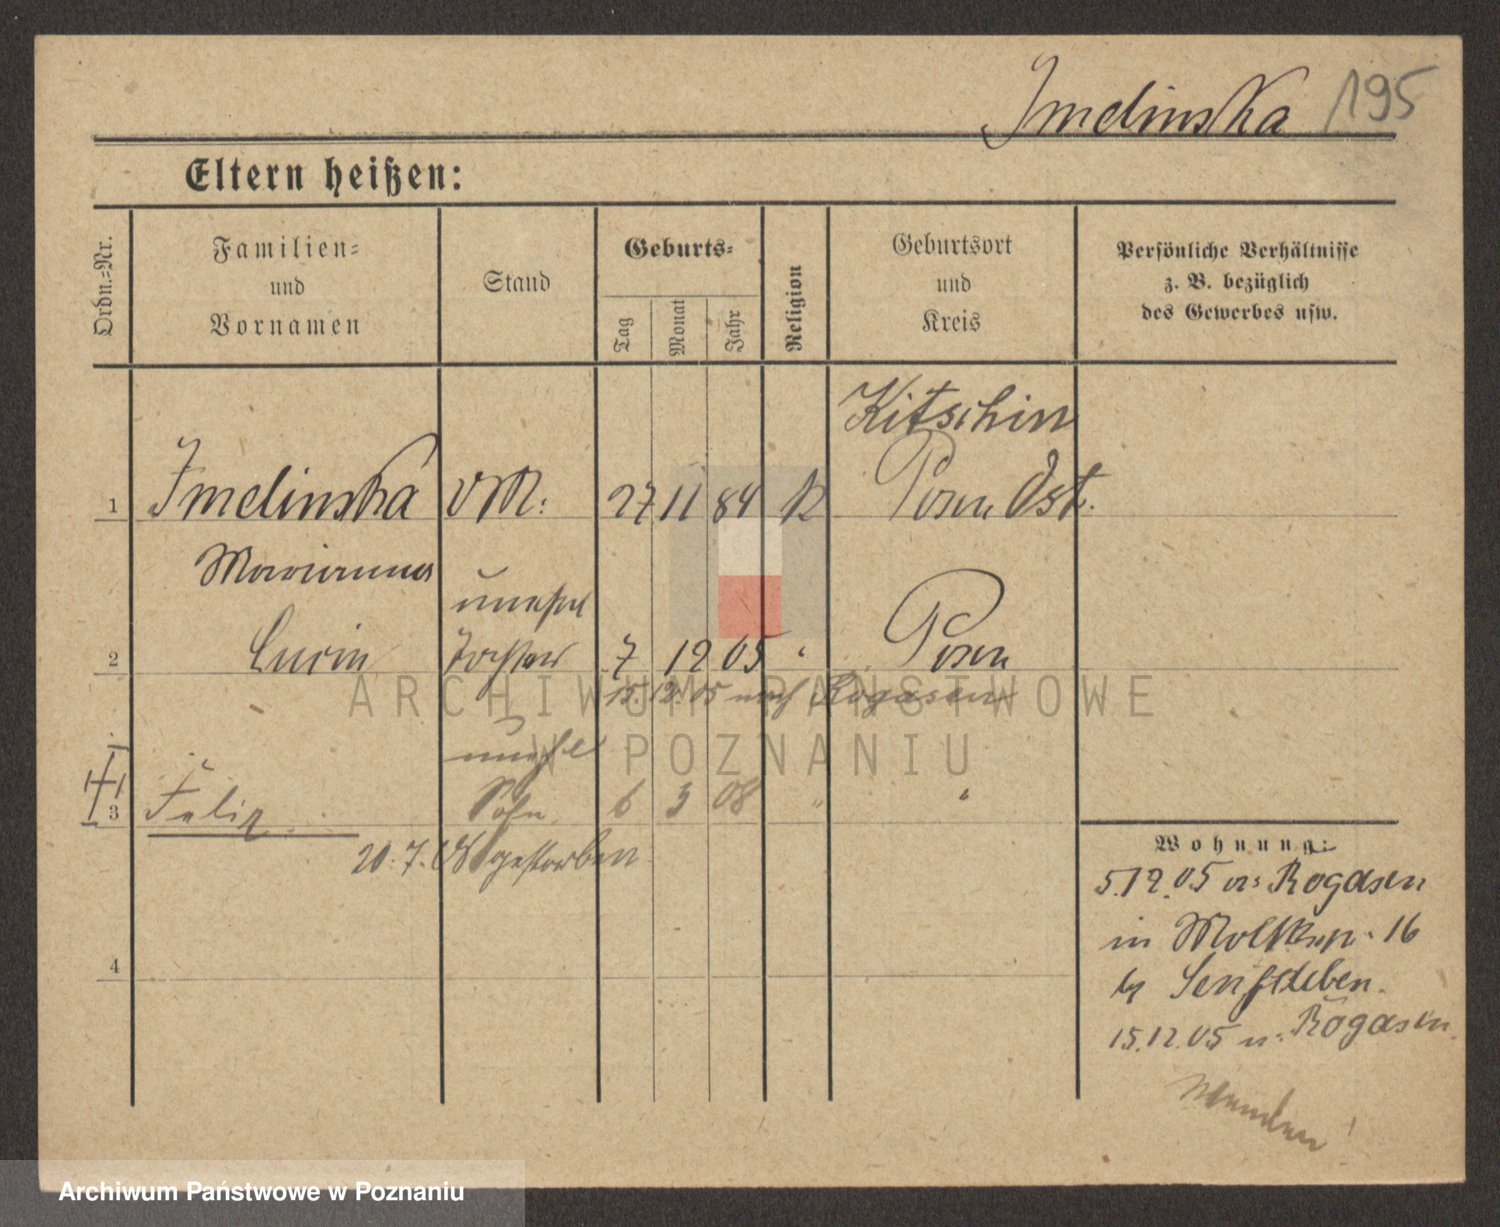 Imelinska 195
Eltern heißen:
Ordn.=Nr.
Familien=
und
Vornamen
Stand
Geburts=
Tag
Monat
Jahr
Religion
Geburtsort
und
Kreis
Persönliche Verhältnisse
z. B. bezüglich
des Gewerbes usw.
Kitschin
1 Imelinska 27 11 84 K Posen Ost.
Marianna
unehel
2 Tochter 7 12 05 " Posen
15.12.05 nach Rogasen
unehel
3 Felix Sohn 6 3 08 " "
20.7.08 gestorben
4
Wohnung:
5.12.05 v. Rogasen
in 16
by Senftleben.
15.12.05 n. Rogasen
Wenden!
ARCHIWUM PAŃSTWOWE
W POZNANIU
Archiwum Państwowe w Poznaniu